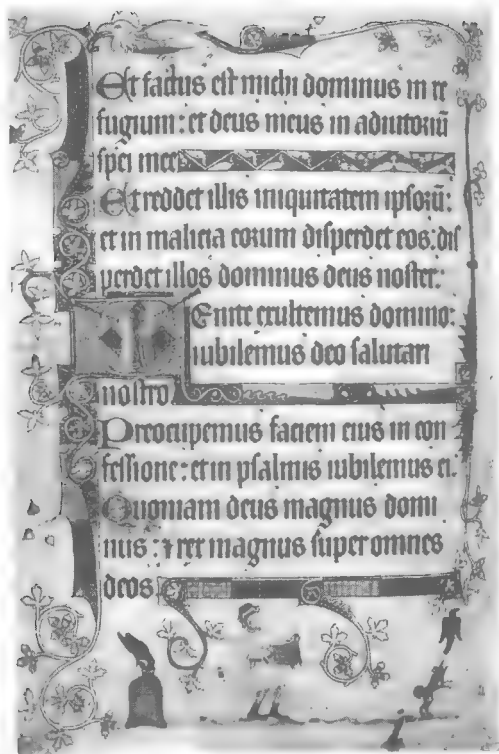 Et factus est michi dominus in re
fugium: et deus meus in adiutoriū
spei mee
Et reddet illis iniquitatem ipsorū:
et in malicia eorum disperdet eos: dis
perdet illos dominus deus noster:
Venite exultemus domino:
iubilemus deo salutari
nostro
Preocupemus faciem eius in con
fessione: et in psalmis iubilemus ei.
Quoniam deus magnus domi
nus: ⁊ rex magnus super omnes
deos